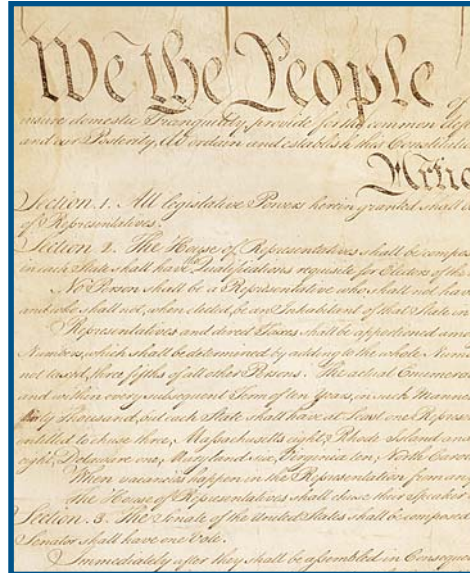 We the People of
insure domestic Tranquility, provide for the common defe
and our Posterity, do ordain and establish this Constitutio
Artic
Section. 1. All legislative Powers herein granted shall be
of Representatives.
Section. 2. The House of Representatives shall be compos
in each State shall have the Qualifications requisite for Electors of the
No Person shall be a Representative who shall not have
and who shall not, when elected, be an Inhabitant of that State in
Representatives and direct Taxes shall be apportioned amo
Numbers, which shall be determined by adding to the whole Num
not taxed, three fifths of all other Persons. The actual Enumera
and within every subsequent Term of ten Years, in such Manne
thirty Thousand, but each State shall have at Least one Repres
entitled to chuse three, Massachusetts eight, Rhode Island and
eight, Delaware one, Maryland six, Virginia ten, North Caro
When vacancies happen in the Representation from any
The House of Representatives shall chuse their Speaker
Section. 3. The Senate of the United States shall be composed
Senator shall have one Vote.
Immediately after they shall be assembled in Conseque